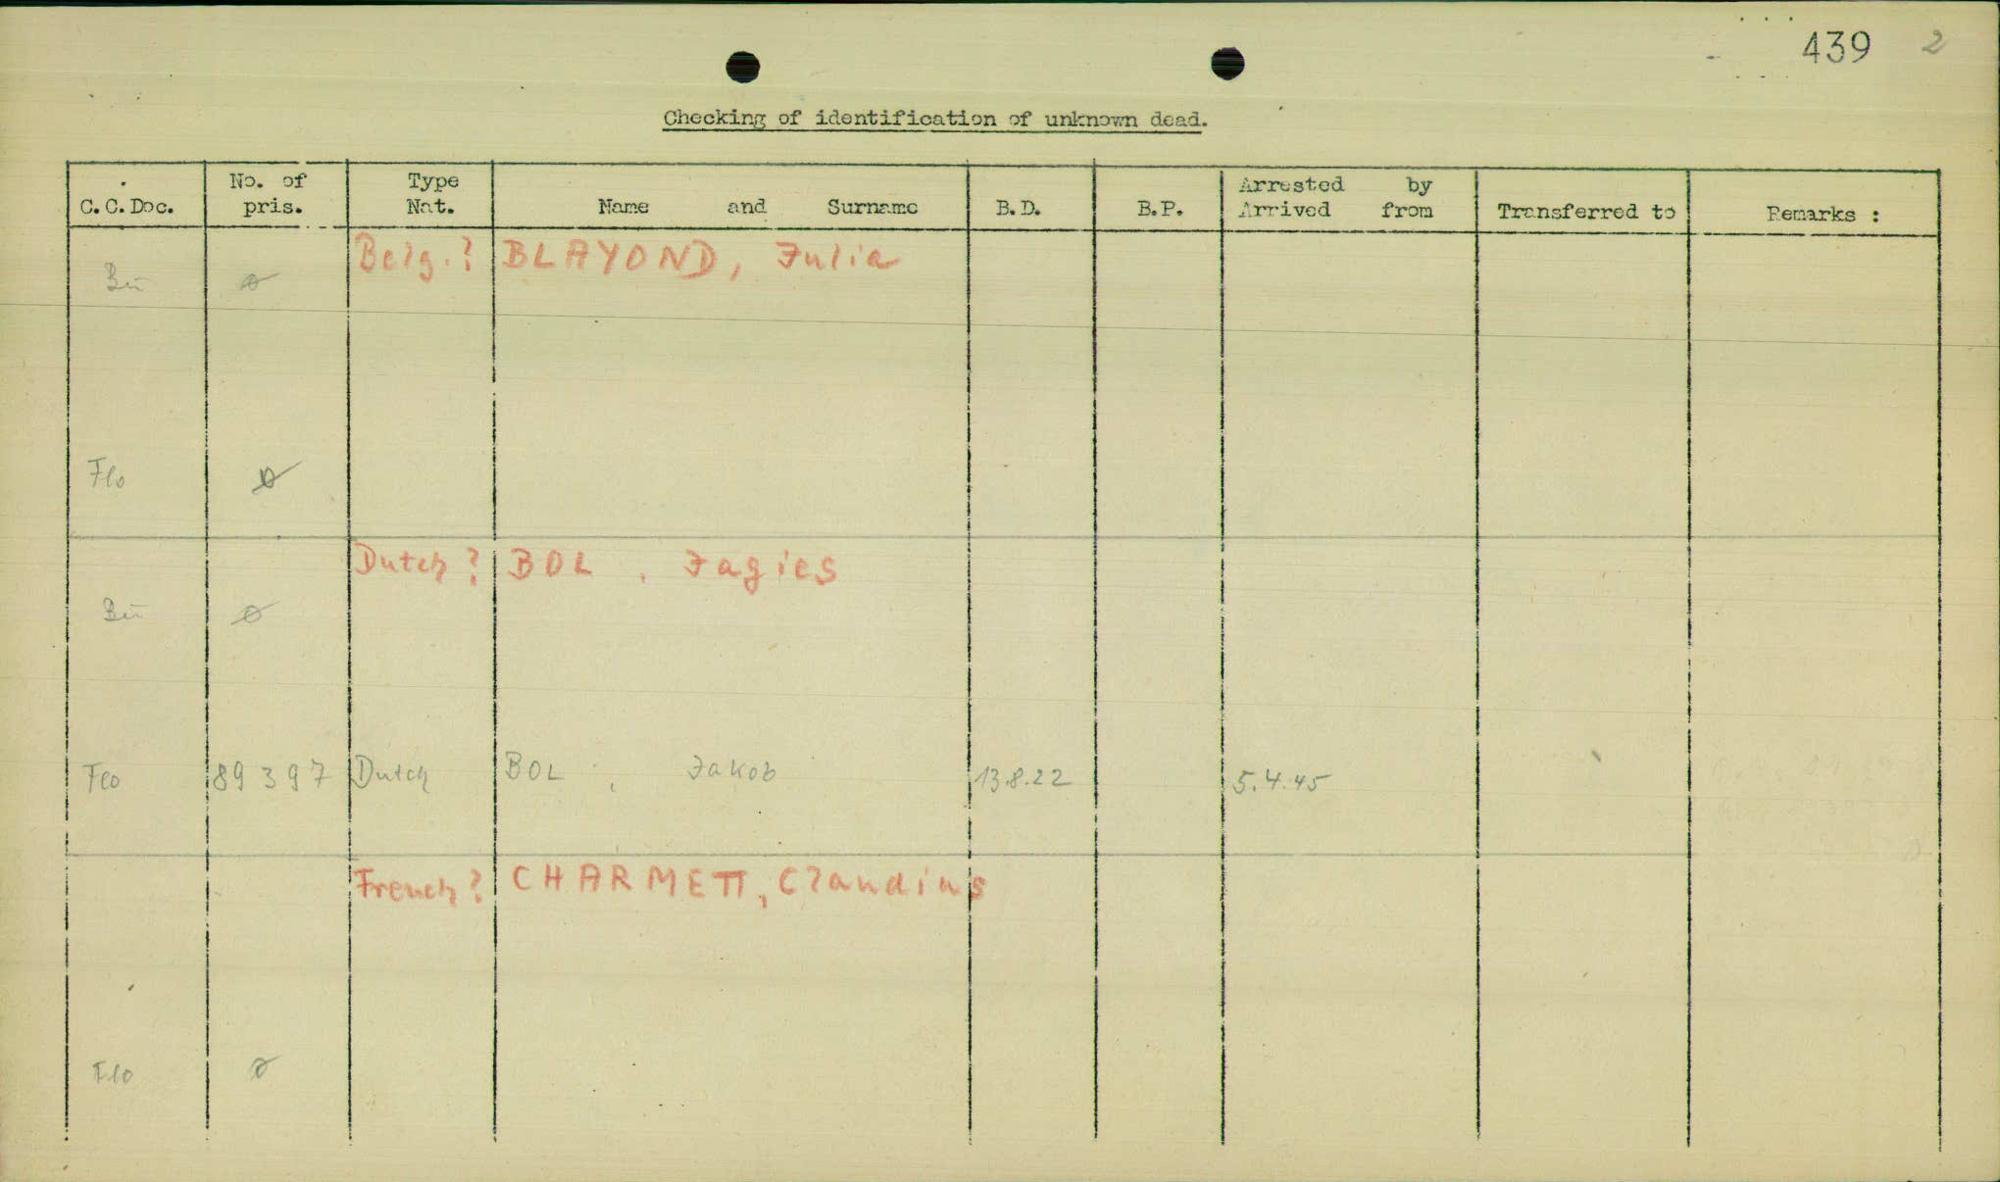 439 2
Checking of identification of unknown dead.
C.C.Doc. No. of pris. Type Nat. Name and Surname B.D. B.P. Arrested by Arrived from Transferred to Remarks :
Belg.? BLAYOND, Julia
Bu ø
Flo ø
Dutch? BOL, Jagies
Bu ø
Flo 89397 Dutch BOL, Jakob 13.8.22 5.4.45
French? CHARMETT, Claudius
Flo ø